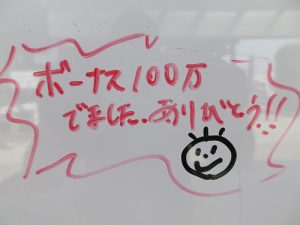 ボーナス100万
でました。ありがとう!!